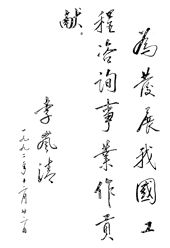 為發展我國工
程咨詢事業作貢
獻。
李嵐清
一九九二年十二月廿二日